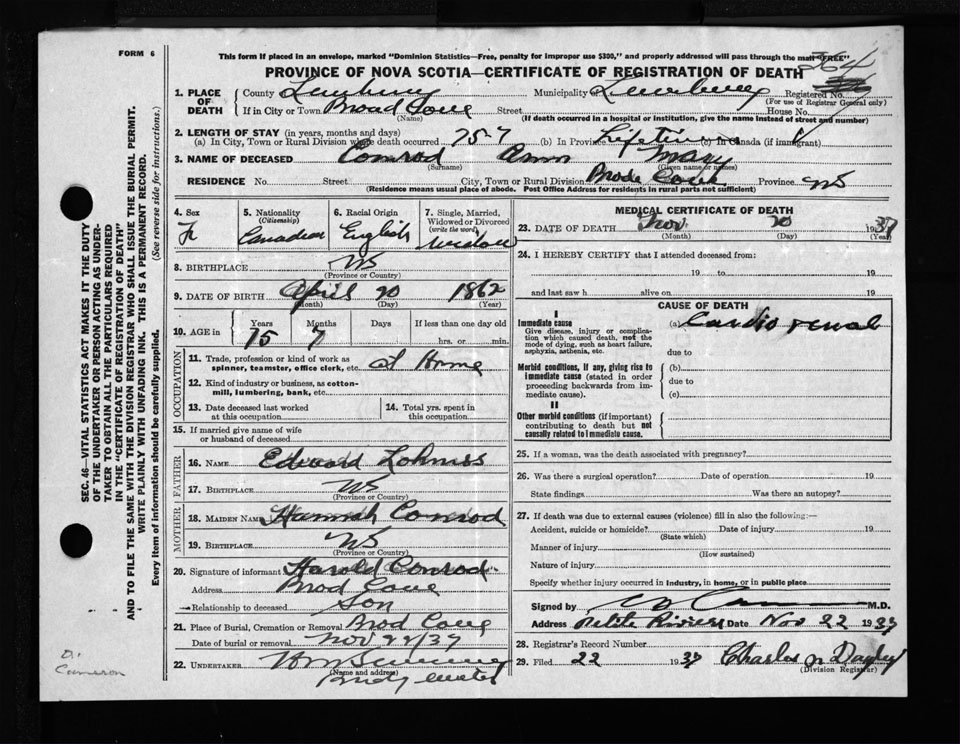 FORM 6
This form if placed in an envelope, marked "Dominion Statistics—Free, penalty for improper use $300," and properly addressed will pass through the mail "FREE"
364
PROVINCE OF NOVA SCOTIA—CERTIFICATE OF REGISTRATION OF DEATH
1. PLACE OF DEATH County Lunenburg Municipality Lunenburg Registered No.
(For use of Registrar General only)
If in City or Town Broad Cove Street House No.
(Name) (If death occurred in a hospital or institution, give the name instead of street and number)
2. LENGTH OF STAY (in years, months and days)
(a) In City, Town or Rural Division where death occurred 75-7 (b) In Province Lifetime (c) In Canada (if immigrant)
3. NAME OF DECEASED Conrod Ann Mary
(Surname) (Given name or names)
RESIDENCE No. Street City, Town or Rural Division Brode Cove Province NS
(Residence means usual place of abode. Post Office Address for residents in rural parts not sufficient)
4. Sex F
5. Nationality (Citizenship) Canadian
6. Racial Origin English
7. Single, Married, Widowed or Divorced (write the word) Widow
8. BIRTHPLACE NS
(Province or Country)
9. DATE OF BIRTH April 20 1862
(Month) (Day) (Year)
10. AGE in Years Months Days If less than one day old
75 7 hrs. or min.
OCCUPATION
11. Trade, profession or kind of work as spinner, teamster, office clerk, etc. at Home
12. Kind of industry or business, as cotton-mill, lumbering, bank, etc.
13. Date deceased last worked at this occupation
14. Total yrs. spent in this occupation
15. If married give name of wife or husband of deceased
FATHER
16. NAME Edward Lohness
17. BIRTHPLACE NS
(Province or Country)
MOTHER
18. MAIDEN NAME Hannah Conrod
19. BIRTHPLACE NS
(Province or Country)
20. Signature of informant Harold Conrod
Address Brod Cove
Relationship to deceased Son
21. Place of Burial, Cremation or Removal Brod Cove
Date of burial or removal Nov 22/37
22. UNDERTAKER
(Name and address)
MEDICAL CERTIFICATE OF DEATH
23. DATE OF DEATH Nov. 20 1937
(Month) (Day) (Year)
24. I HEREBY CERTIFY that I attended deceased from:
19 to 19
and last saw h alive on 19
CAUSE OF DEATH
I
Immediate cause (a) Cardio renal
Give disease, injury or complication which caused death, not the mode of dying, such as heart failure, asphyxia, asthenia, etc.
due to
Morbid conditions, if any, giving rise to immediate cause (stated in order proceeding backwards from immediate cause).
(b)
due to
(c)
II
Other morbid conditions (if important) contributing to death but not causally related to immediate cause.
25. If a woman, was the death associated with pregnancy?
26. Was there a surgical operation? Date of operation 19
State findings Was there an autopsy?
27. If death was due to external causes (violence) fill in also the following:—
Accident, suicide or homicide? Date of injury 19
(State which)
Manner of injury
(How sustained)
Nature of injury
Specify whether injury occurred in industry, in home, or in public place
Signed by M.D.
Address Petite Riviere Date Nov 22 1937
28. Registrar's Record Number
29. Filed 22 1937 Charles
(Division Registrar)
SEC. 46—VITAL STATISTICS ACT MAKES IT THE DUTY
OF THE UNDERTAKER OR PERSON ACTING AS UNDER-
TAKER TO OBTAIN ALL THE PARTICULARS REQUIRED
IN THE "CERTIFICATE OF REGISTRATION OF DEATH"
AND TO FILE THE SAME WITH THE DIVISION REGISTRAR WHO SHALL ISSUE THE BURIAL PERMIT.
WRITE PLAINLY WITH UNFADING INK. THIS IS A PERMANENT RECORD.
Every item of information should be carefully supplied. (See reverse side for instructions.)
Dr
Cameron